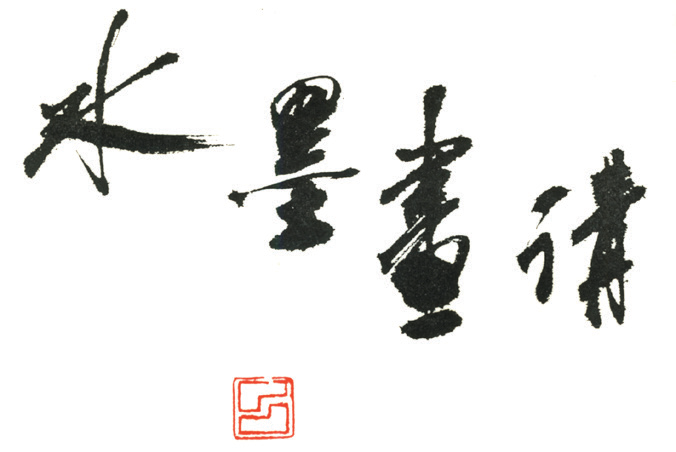 水墨畫講